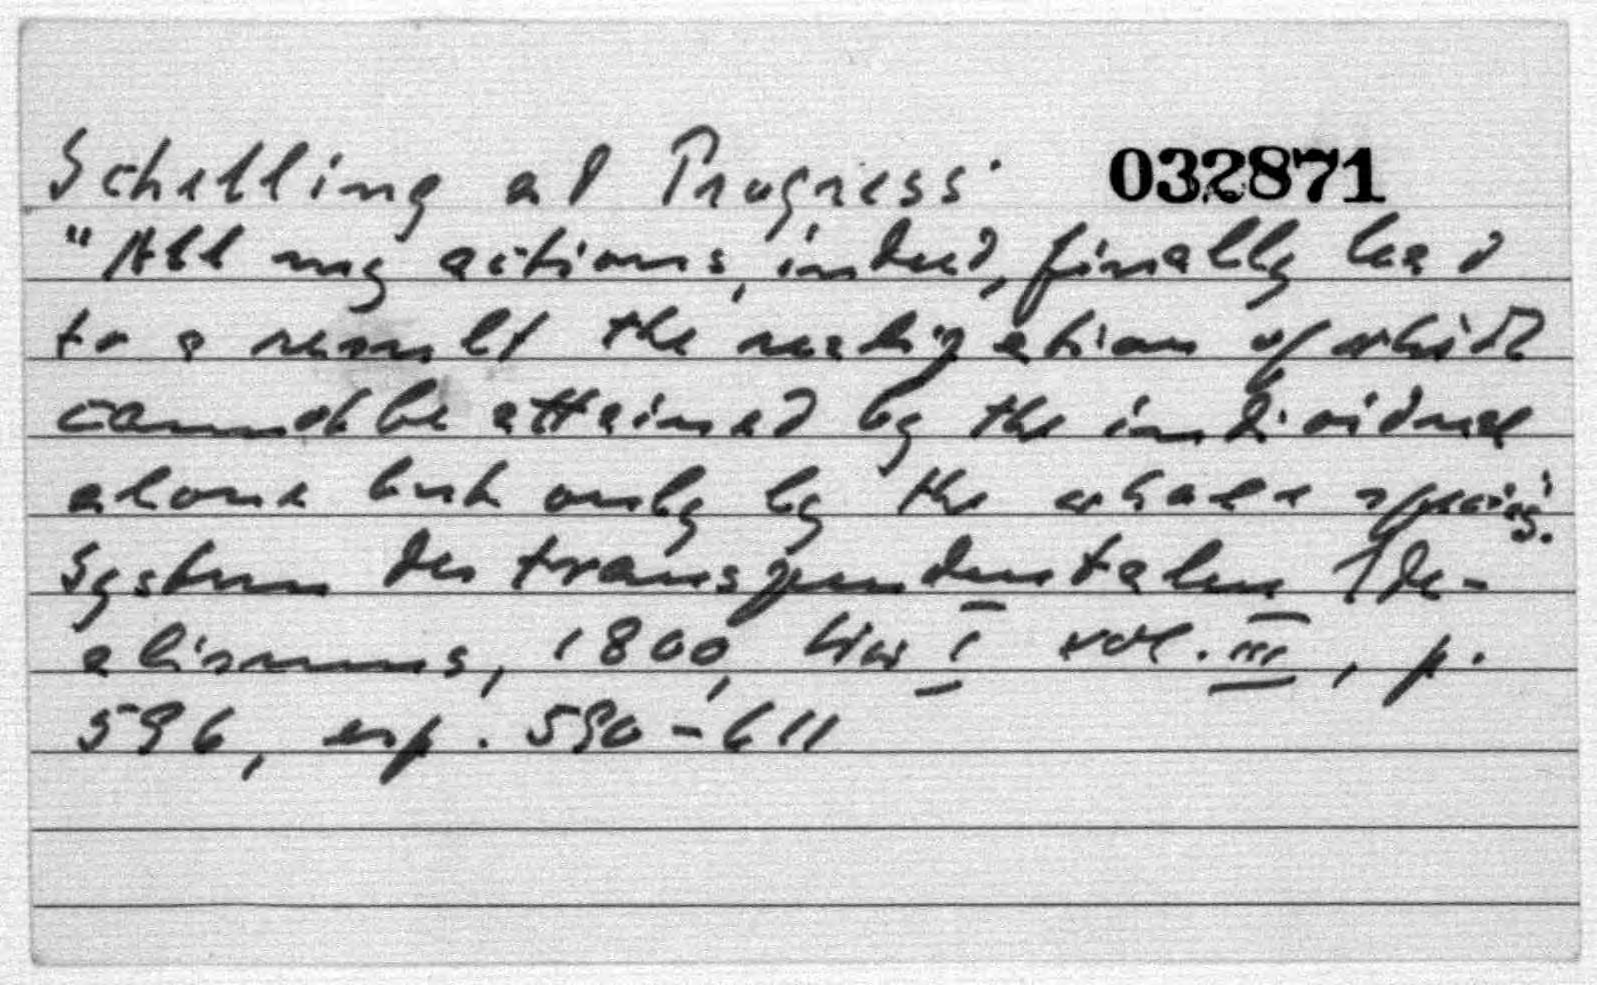 Schelling ad Progress: 032871
"All my actions, indeed, finally lead
to a result the realization of which
cannot be attained by the individual
alone but only by the whole species".
System des transzendentalen Ide-
alismus, 1800, I vol. III, p.
596, esp. 590-611